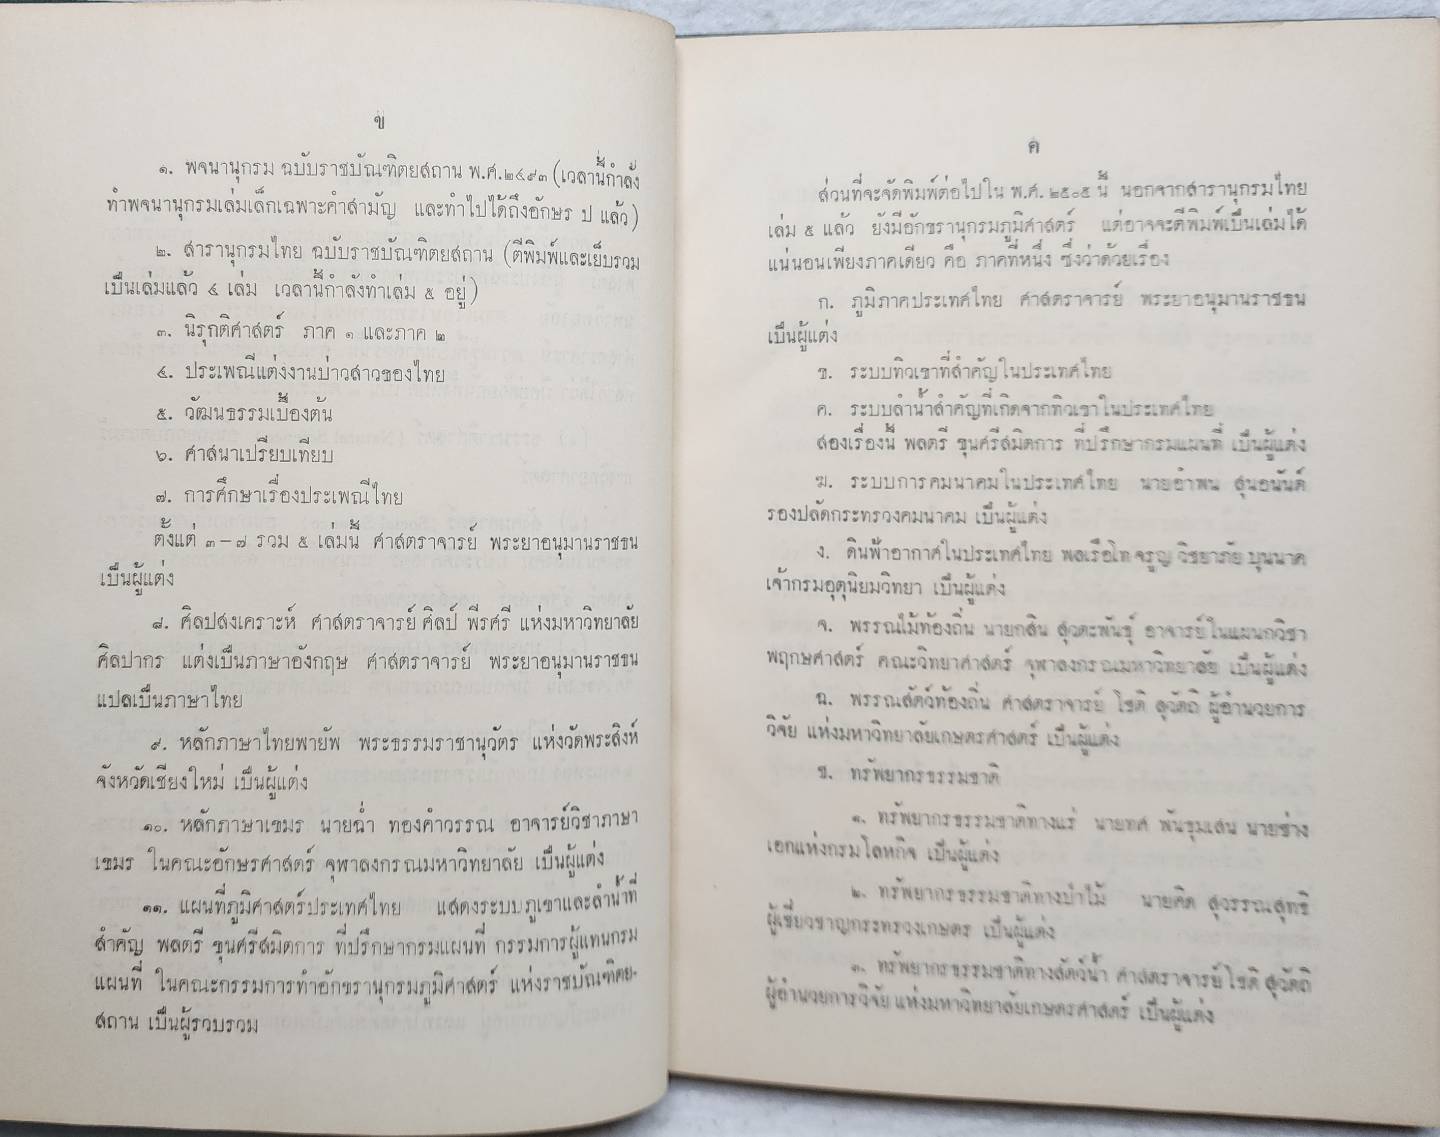 ข
๑. พจนานุกรม ฉบับราชบัณฑิตยสถาน พ.ศ.๒๔๙๓ (เวลานี้กำลัง
ทำพจนานุกรมเล่มเล็กเฉพาะคำสามัญ และทำไปได้ถึงอักษร ป แล้ว)
๒. สารานุกรมไทย ฉบับราชบัณฑิตยสถาน (ตีพิมพ์และเย็บรวม
เป็นเล่มแล้ว ๔ เล่ม เวลานี้กำลังทำเล่ม ๕ อยู่)
๓. นิรุกติศาสตร์ ภาค ๑ และภาค ๒
๔. ประเพณีแต่งงานบ่าวสาวของไทย
๕. วัฒนธรรมเบื้องต้น
๖. ศาสนาเปรียบเทียบ
๗. การศึกษาเรื่องประเพณีไทย
ตั้งแต่ ๓–๗ รวม ๕ เล่มนี้ ศาสตราจารย์ พระยาอนุมานราชธน
เป็นผู้แต่ง
๘. ศิลปสงเคราะห์ ศาสตราจารย์ ศิลป์ พีรศรี แห่งมหาวิทยาลัย
ศิลปากร แต่งเป็นภาษาอังกฤษ ศาสตราจารย์ พระยาอนุมานราชธน
แปลเป็นภาษาไทย
๙. หลักภาษาไทยพายัพ พระธรรมราชานุวัตร แห่งวัดพระสิงห์
จังหวัดเชียงใหม่ เป็นผู้แต่ง
๑๐. หลักภาษาเขมร นายฉ่ำ ทองคำวรรณ อาจารย์วิชาภาษา
เขมร ในคณะอักษรศาสตร์ จุฬาลงกรณมหาวิทยาลัย เป็นผู้แต่ง
๑๑. แผนที่ภูมิศาสตร์ประเทศไทย แสดงระบบภูเขาและลำน้ำที่
สำคัญ พลตรี ขุนศรีสมิตการ ที่ปรึกษากรมแผนที่ กรรมการผู้แทนกรม
แผนที่ ในคณะกรรมการทำอักขรานุกรมภูมิศาสตร์ แห่งราชบัณฑิตย-
สถาน เป็นผู้รวบรวม
ค
ส่วนที่จะจัดพิมพ์ต่อไปใน พ.ศ. ๒๕๐๕ นี้ นอกจากสารานุกรมไทย
เล่ม ๕ แล้ว ยังมีอักขรานุกรมภูมิศาสตร์ แต่อาจจะตีพิมพ์เป็นเล่มได้
แน่นอนเพียงภาคเดียว คือ ภาคที่หนึ่ง ซึ่งว่าด้วยเรื่อง
ก. ภูมิภาคประเทศไทย ศาสตราจารย์ พระยาอนุมานราชธน
เป็นผู้แต่ง
ข. ระบบทิวเขาที่สำคัญในประเทศไทย
ค. ระบบลำน้ำสำคัญที่เกิดจากทิวเขาในประเทศไทย
สองเรื่องนี้ พลตรี ขุนศรีสมิตการ ที่ปรึกษากรมแผนที่ เป็นผู้แต่ง
ฆ. ระบบการคมนาคมในประเทศไทย นายอำพน สุนอนันต์
รองปลัดกระทรวงคมนาคม เป็นผู้แต่ง
ง. ดินฟ้าอากาศในประเทศไทย พลเรือโท จรูญ วิชยาภัย บุนนาค
เจ้ากรมอุตุนิยมวิทยา เป็นผู้แต่ง
จ. พรรณไม้ท้องถิ่น นายกสิน สุวตะพันธุ์ อาจารย์ในแผนกวิชา
พฤกษศาสตร์ คณะวิทยาศาสตร์ จุฬาลงกรณมหาวิทยาลัย เป็นผู้แต่ง
ฉ. พรรณสัตว์ท้องถิ่น ศาสตราจารย์ โชติ สุวัตถิ ผู้อำนวยการ
วิจัย แห่งมหาวิทยาลัยเกษตรศาสตร์ เป็นผู้แต่ง
ช. ทรัพยากรธรรมชาติ
๑. ทรัพยากรธรรมชาติทางแร่ นายทศ พันธุมเสน นายช่าง
เอกแห่งกรมโลหกิจ เป็นผู้แต่ง
๒. ทรัพยากรธรรมชาติทางป่าไม้ นายคิด สุวรรณสุทธิ
ผู้เชี่ยวชาญกระทรวงเกษตร เป็นผู้แต่ง
๓. ทรัพยากรธรรมชาติทางสัตว์น้ำ ศาสตราจารย์ โชติ สุวัตถิ
ผู้อำนวยการวิจัย แห่งมหาวิทยาลัยเกษตรศาสตร์ เป็นผู้แต่ง